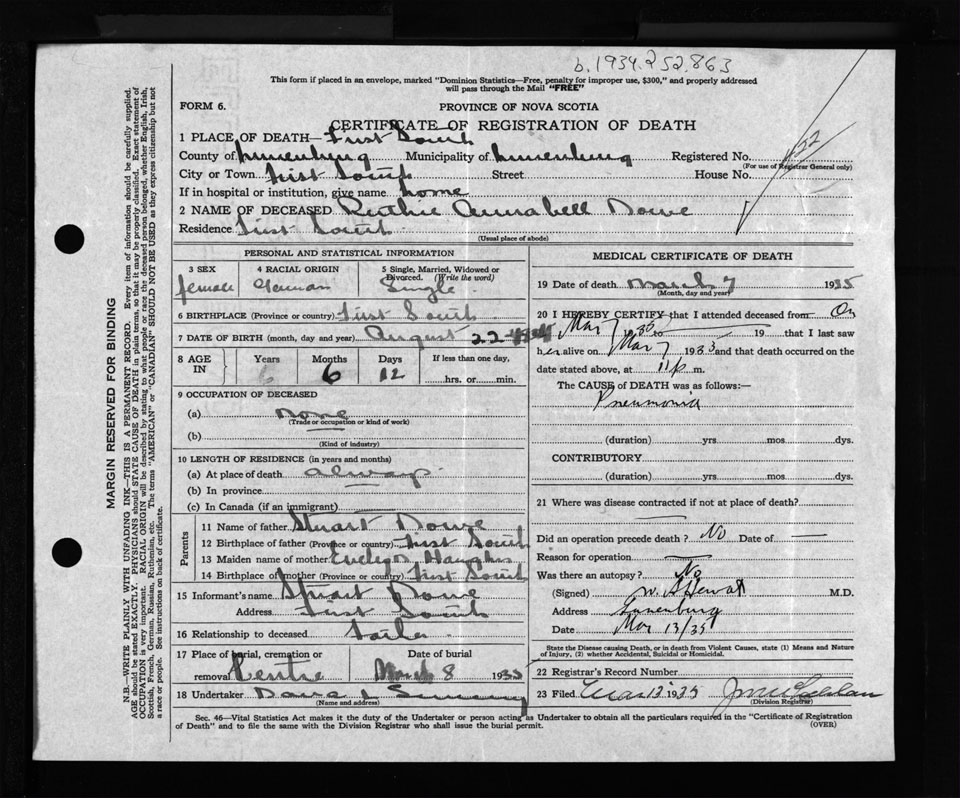 b.1934.252.863
This form if placed in an envelope, marked "Dominion Statistics—Free, penalty for improper use, $300," and properly addressed
will pass through the Mail "FREE"
FORM 6.
PROVINCE OF NOVA SCOTIA
CERTIFICATE OF REGISTRATION OF DEATH
1 PLACE OF DEATH— First South
County of Lunenburg Municipality of Lunenburg Registered No.
(For use of Registrar General only)
City or Town First South Street House No.
If in hospital or institution, give name home
2 NAME OF DECEASED Ruthie Annabell Dowe
Residence First South
(Usual place of abode)
PERSONAL AND STATISTICAL INFORMATION
3 SEX 4 RACIAL ORIGIN 5 Single, Married, Widowed or
Divorced. (Write the word)
female German Single
6 BIRTHPLACE (Province or country) First South
7 DATE OF BIRTH (month, day and year) August 22
8 AGE IN Years Months 6 Days 12 If less than one day,
hrs. or min.
9 OCCUPATION OF DECEASED
(a) None
(Trade or occupation or kind of work)
(b)
(Kind of industry)
10 LENGTH OF RESIDENCE (in years and months)
(a) At place of death always
(b) In province
(c) In Canada (if an immigrant)
Parents
11 Name of father Stuart Dowe
12 Birthplace of father (Province or country) First South
13 Maiden name of mother Evelyn
14 Birthplace of mother (Province or country) First South
15 Informant's name Stuart Dowe
Address First South
16 Relationship to deceased
17 Place of burial, cremation or Date of burial
removal Centre March 8 1935
18 Undertaker
(Name and address)
MEDICAL CERTIFICATE OF DEATH
19 Date of death March 7 1935
(Month, day and year)
20 I HEREBY CERTIFY that I attended deceased from On
Mar 7 1935 19 that I last saw
her alive on Mar 7 1933 and that death occurred on the
date stated above, at 11 p m.
The CAUSE OF DEATH was as follows:—
Pneumonia
(duration) yrs. mos. dys.
CONTRIBUTORY
(duration) yrs. mos. dys.
21 Where was disease contracted if not at place of death?
Did an operation precede death? No Date of —
Reason for operation
Was there an autopsy? No
(Signed) M.D.
Address Lunenburg
Date Mar 13/35
State the Disease causing Death, or in death from Violent Causes, state (1) Means and Nature
of Injury, (2) whether Accidental, Suicidal or Homicidal.
22 Registrar's Record Number
23 Filed 1935
(Division Registrar)
Sec. 46—Vital Statistics Act makes it the duty of the Undertaker or person acting as Undertaker to obtain all the particulars required in the "Certificate of Registration
of Death" and to file the same with the Division Registrar who shall issue the burial permit. (OVER)
MARGIN RESERVED FOR BINDING
N.B.—WRITE PLAINLY WITH UNFADING INK—THIS IS A PERMANENT RECORD. Every item of information should be carefully supplied.
AGE should be stated EXACTLY. PHYSICIANS should STATE CAUSE OF DEATH in plain terms, so that it may be properly classified. Exact statement of
OCCUPATION is very important. RACIAL ORIGIN will be described by stating to what people or race the deceased person belonged, whether English, Irish,
Scottish, French, German, Russian, Ruthenian, etc. The terms "AMERICAN" or "CANADIAN" SHOULD NOT BE USED as they express citizenship but not
a race or people. See instructions on back of certificate.